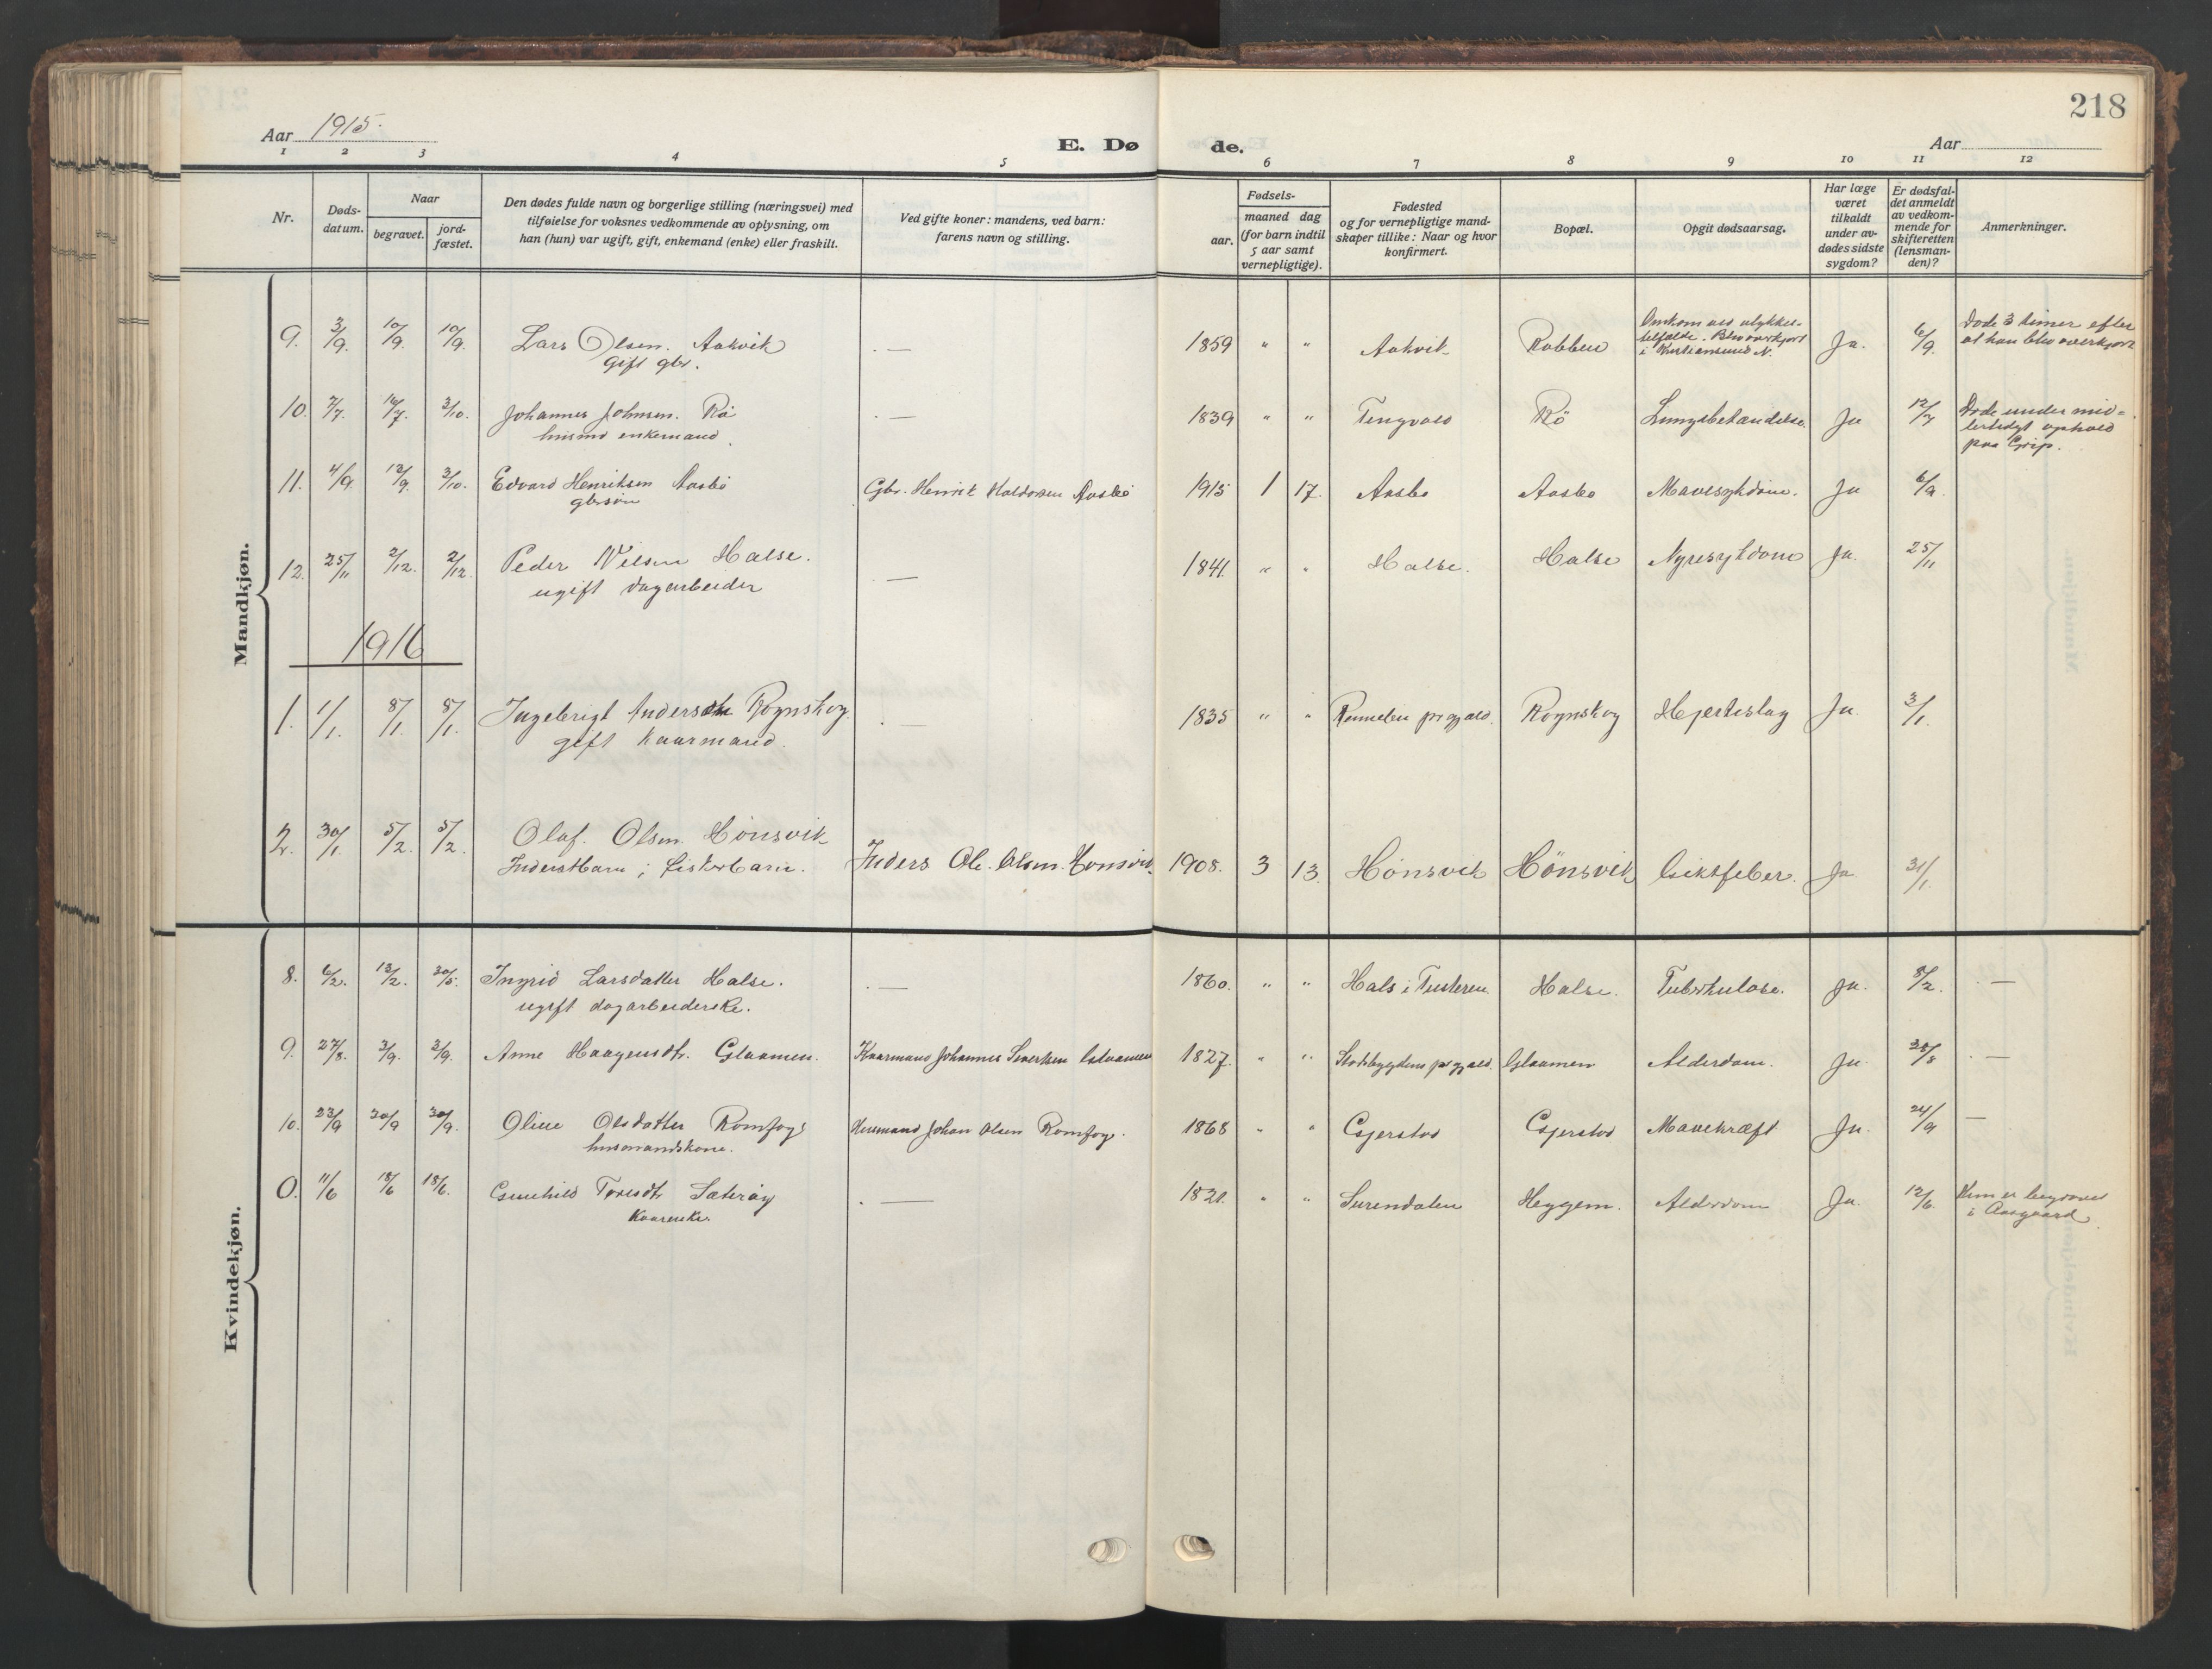 218
Aar 1915.
E. Dø
de.
Aar
1 2 3 4 5 6 7 8 9 10 11 12
Nr.
Døds-
datum.
Naar
begravet.
jord-
fæstet.
Den dødes fulde navn og borgerlige stilling (næringsvei) med
tilføielse for voksnes vedkommende av oplysning, om
han (hun) var ugift, gift, enkemand (enke) eller fraskilt.
Ved gifte koner: mandens, ved barn:
farens navn og stilling.
Fødsels-
aar.
maaned dag
(for barn indtil
5 aar samt
vernepligtige).
Fødested
og for vernepligtige mand-
skaper tillike: Naar og hvor
konfirmert.
Bopæl.
Opgit dødsaarsag.
Har læge
været
tilkaldt
under av-
dødes sidste
sygdom?
Er dødsfal-
det anmeldt
av vedkom-
mende for
skifteretten
(lensman-
den)?
Anmerkninger.
Mandkjøn.
9. 3/9. 10/9. 10/9. Lars Olsen. Aakvik — 1859 " " Aakvik Rabben Omkom ved ulykkes- Ja. 6/9. Døde 3 timer efter
gift gbr. tilfælde. Blev overkjørt at han blev overkjørt
i Kristiansund N.
10. 7/7. 16/7. 3/10. Johannes Johnsen. Rø — 1839 " " Tingvold Rö Lungebetændelse. Ja 12/7 Døde under mid=
husmd enkemand. lertidigt ophold
paa Grip.
11. 4/9. 12/9. 3/10. Edvard Henriksen Aasbø Gbr. Henrik Haldorsen Aasbø 1915 1 17. Aasbø Aasbø Mavesykdom. Ja 6/9.
gbrsøn
12. 25/11 2/12. 2/12. Peder Nilsen Halse. — 1841. " " Halse. Halse Nyresykdom Ja. 25/11
ugift dagarbeider
1916
1. 1/1. 8/1. 8/1. Ingebrigt Andersen Rognskog. — 1835 " " Rennebu prgjæld. Rognskog Hjerteslag Ja. 3/1.
gift kaarmand.
2. 30/1. 5/2. 5/2. Olaf. Olsen Hönsvik Inders Ole. Olsen. Honsvik. 1908. 3 13. Hönsvik Hönsvik Giktfeber. Ja 31/1.
Inderstbarn; fiskerbarn.
Kvindekjøn.
8. 6/2. 13/2. 30/5. Ingrid Larsdatter Halse. — 1860. " " Hals i Tusteren. Halse. Tuberkulose. Ja. 8/2. —
ugift dagarbeiderske.
9. 27/8. 3/9. 3/9. Anne Haagensdtr. Glaamen. Kaarmand Johannes Sivertsen Glaamen 1827. " " Stadsbygdens prgjæld. Glaamen Alderdom. Ja. 28/8 —
10. 23/9 30/9 30/9. Oline Olsdatter Romfog Husmand Johan Olsen Romfog. 1868 " " Gjerstad Gjerstad Mavekræft Ja. 24/9 —
husmandskone.
0. 11/6 18/6 18/6. Gunhild Toresdtr Sæterøy — 1821. " " Surendalen Heggem. Alderdom Ja. 12/6. Hun er begravet
Kaarenke. i Aasgaard.